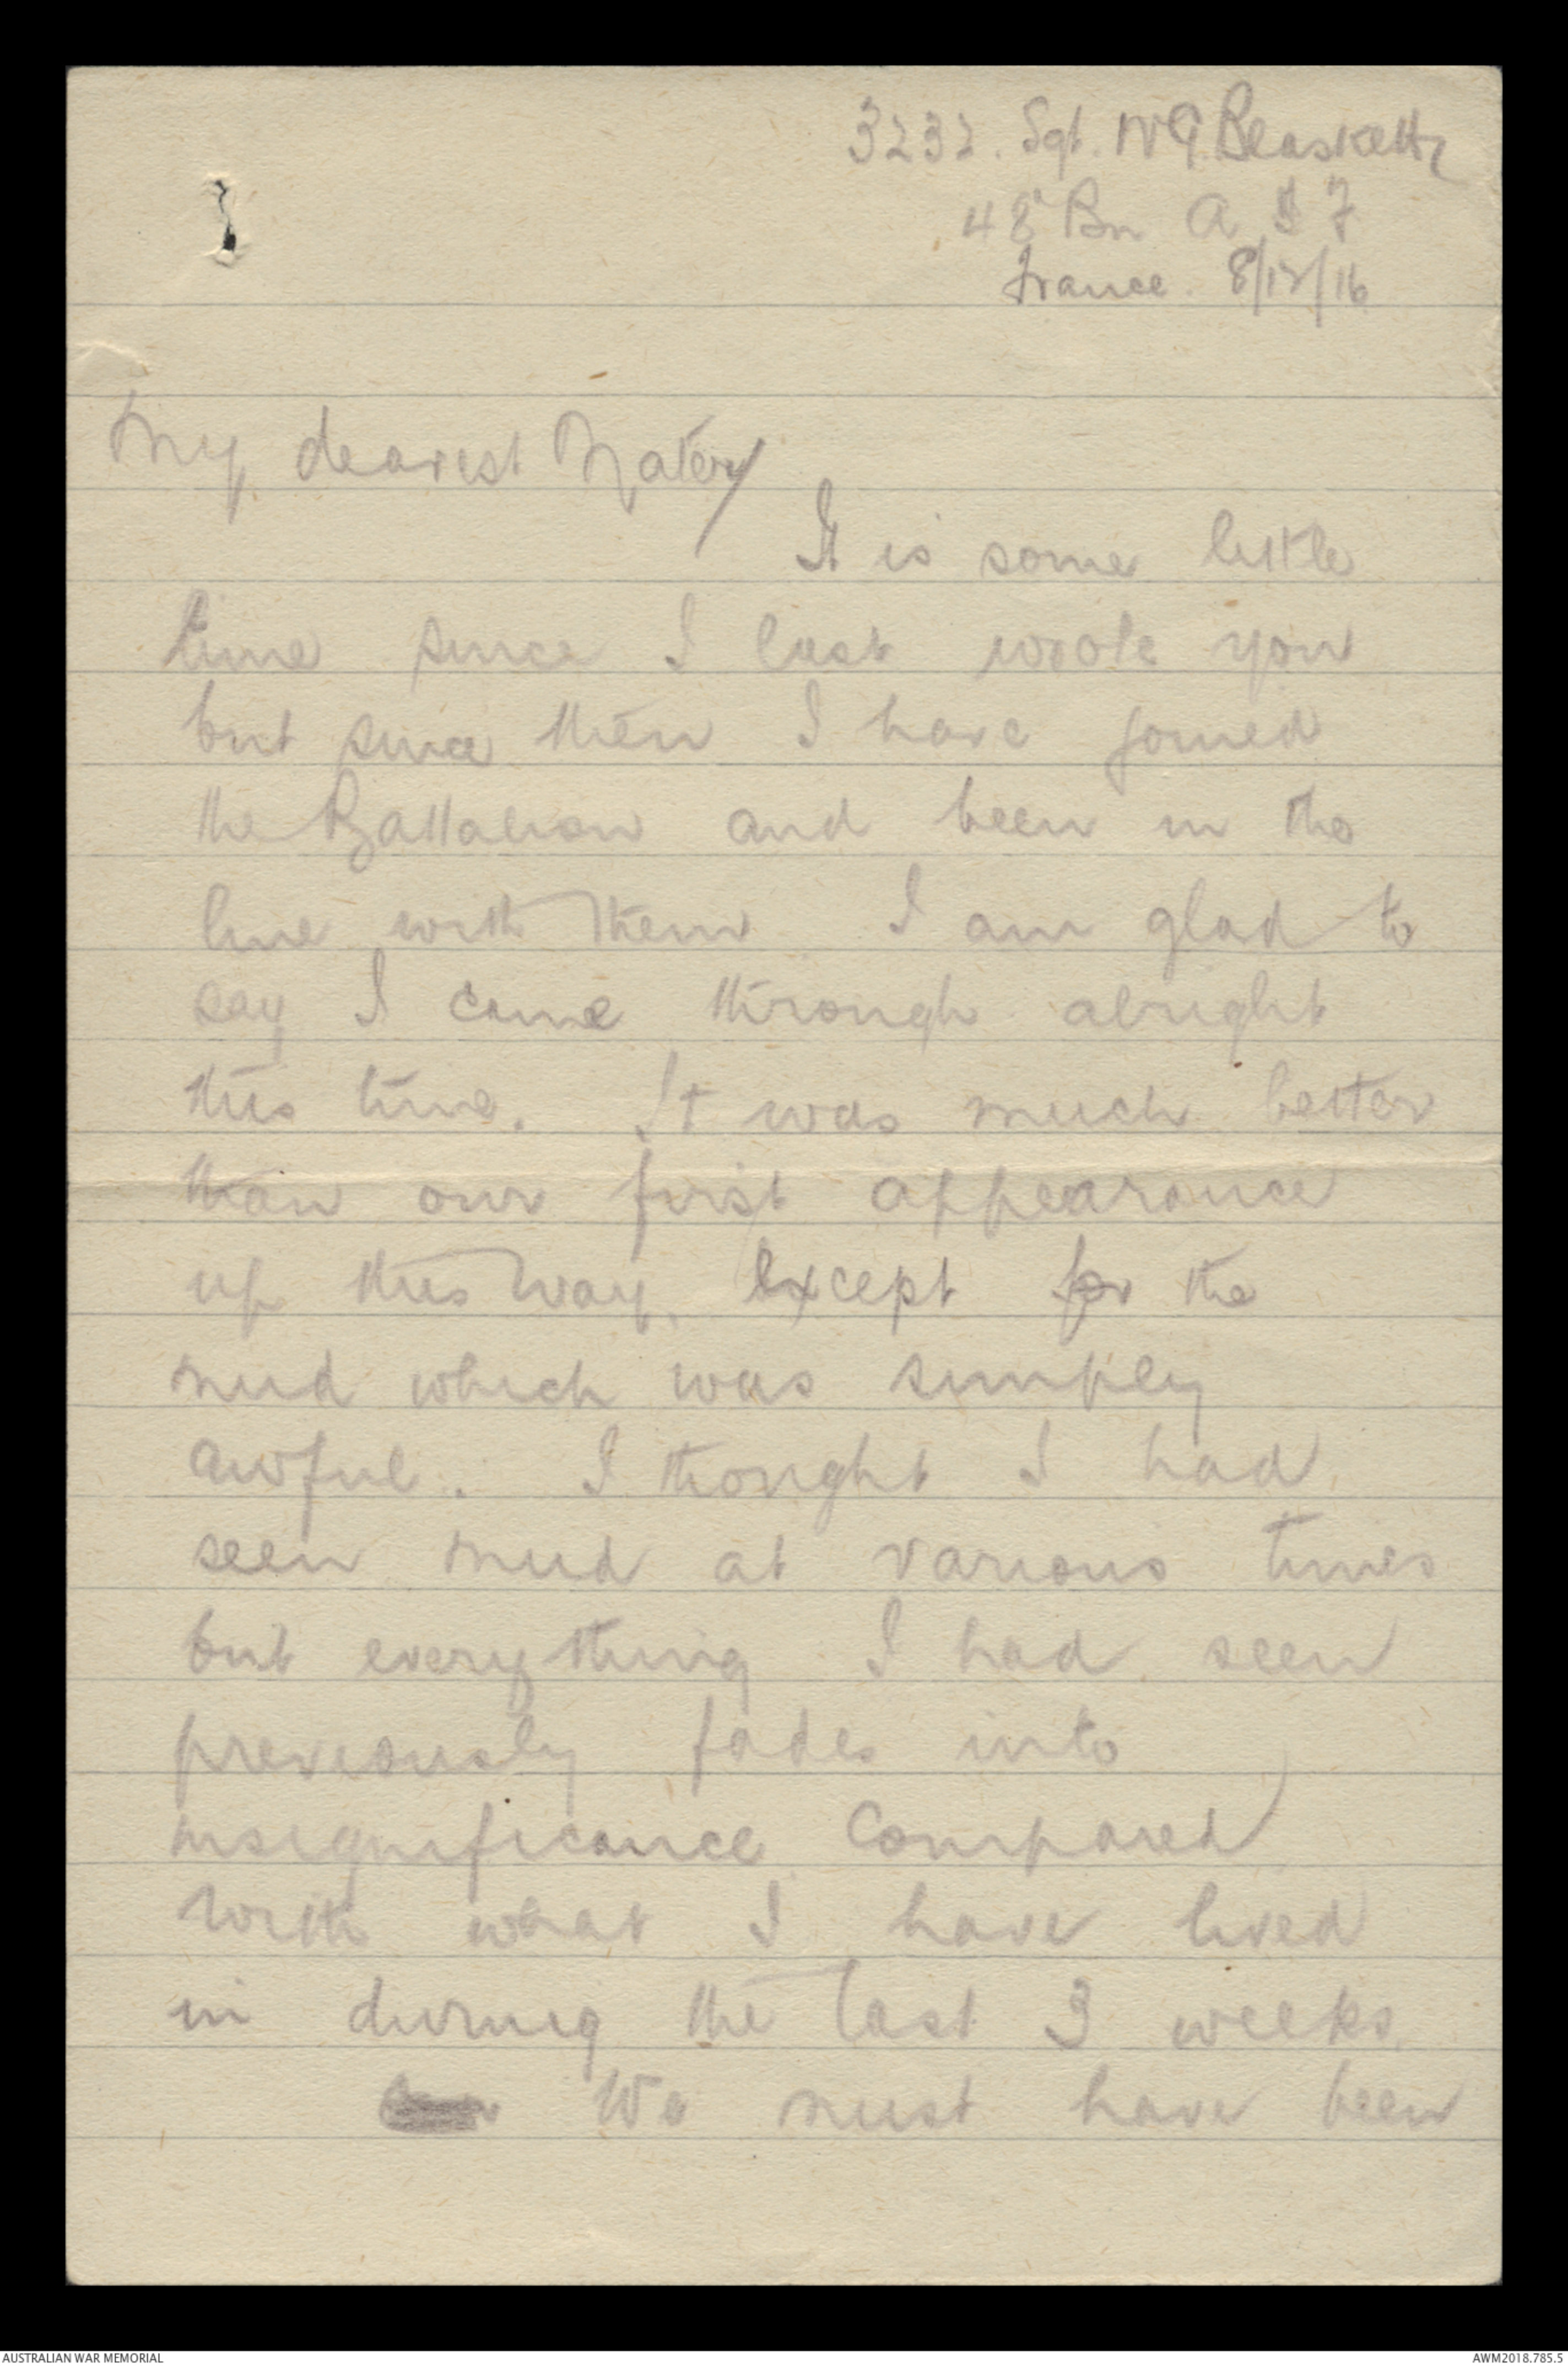 3232. Sgt. W G Blaskett
48 Bn A I F
France. 8/12/16
My dearest Mater
It is some little
time since I last wrote you
but since then I have joined
the Battalion and been in the
line with them I am glad to
say I came through alright
this time. It was much better
than our first appearance
up this way, except for the
mud which was simply
awful. I thought I had
seen mud at various times
but everything I had seen
previously fades into
insignificance compared
with what I have lived
in during the last 3 weeks.
We must have been
AUSTRALIAN WAR MEMORIAL
AWM2018.785.5